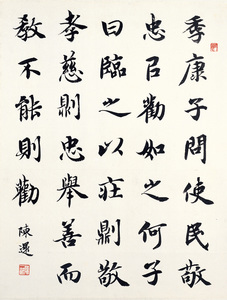 季康子問使民敬
忠㠯勸如之何子
曰臨之以莊則敬
孝慈則忠舉善而
教不能則勸
陳